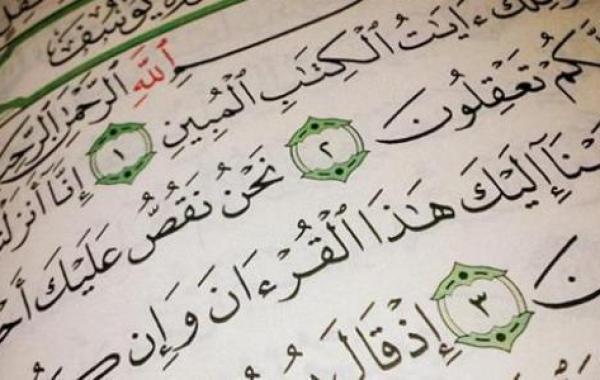 يُوسُفَ
ٱللَّهِ ٱلرَّحْمَٰنِ ٱلرَّحِيمِ
ءَايَٰتُ ٱلْكِتَٰبِ ٱلْمُبِينِ ١ إِنَّآ أَنزَلْنَ
لَّكُمْ تَعْقِلُونَ ٢ نَحْنُ نَقُصُّ عَلَيْكَ أَحْ
يْنَآ إِلَيْكَ هَٰذَا ٱلْقُرْءَانَ وَإِن
٣ إِذْ قَالَ